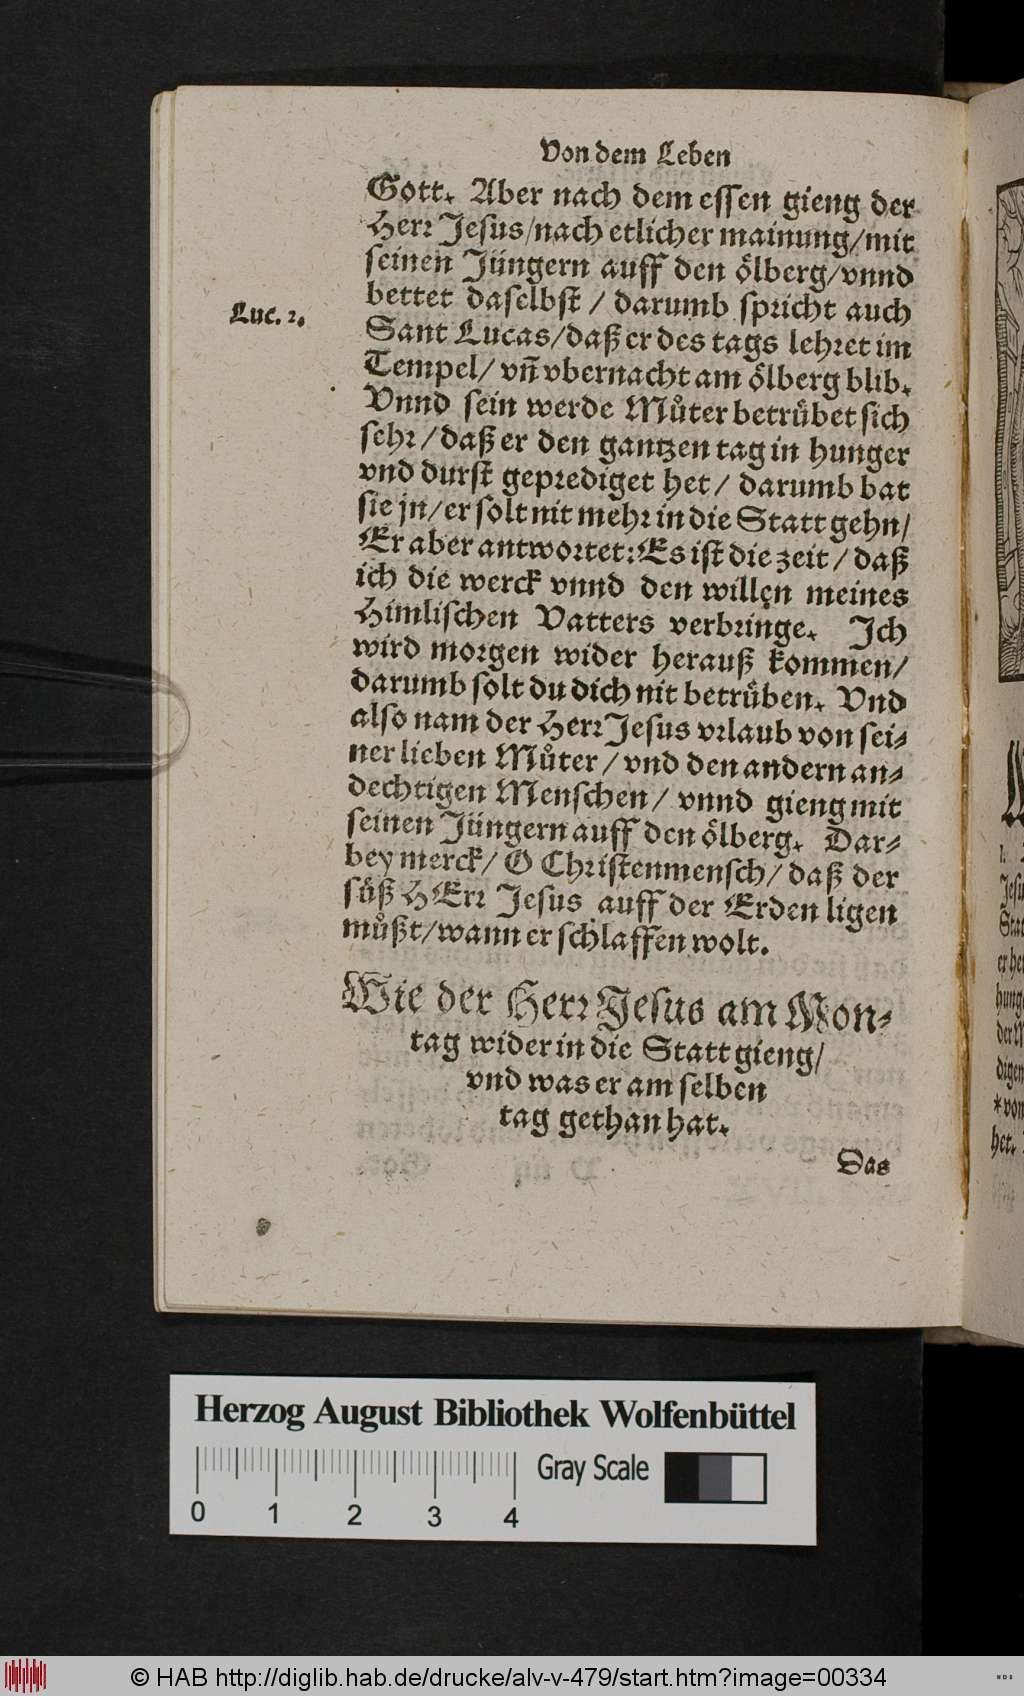 Von dem Leben
Gott. Aber nach dem essen gieng der
Herr Jesus/nach etlicher mainung/mit
seinen Jüngern auff den ölberg/vnnd
bettet daselbst / darumb spricht auch
Luc. 2.
Sant Lucas/daß er des tags lehret im
Tempel/ vn̄ vbernacht am ölberg blib.
Vnnd sein werde Můter betrübet sich
sehr/daß er den gantzen tag in hunger
vnd durst geprediget het/ darumb bat
sie jn/er solt nit mehr in die Statt gehn/
Er aber antwortet: Es ist die zeit / daß
ich die werck vnnd den willen meines
Himlischen Vatters verbringe. Ich
wird morgen wider herauß kommen/
darumb solt du dich nit betrüben. Vnd
also nam der Herr Jesus vrlaub von sei-
ner lieben Můter / vnd den andern an-
dechtigen Menschen/ vnnd gieng mit
seinen Jüngern auff den ölberg. Dar-
bey merck/ O Christenmensch/ daß der
süß HErr Jesus auff der Erden ligen
můßt/wann er schlaffen wolt.
Wie der Herr Jesus am Mon-
tag wider in die Statt gieng/
vnd was er am selben
tag gethan hat.
Das
Jesu
Stat
er he
hung
der
digen
*von
het.
Herzog August Bibliothek Wolfenbüttel
0 1 2 3 4
Gray Scale
© HAB http://diglib.hab.de/drucke/alv-v-479/start.htm?image=00334